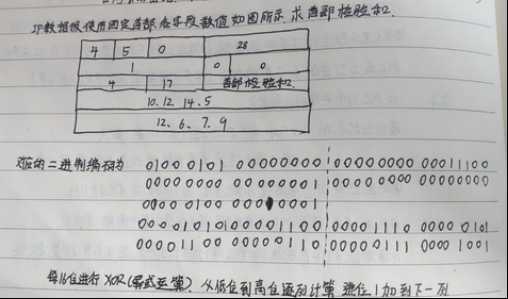 IP数据报使用固定首部 各字段数值如图所示. 求首部检验和.
4 5 0 28
1 0 0
4 17 首部检验和
10.12.14.5
12.6.7.9
对应的二进制编码为 0100 0101 00000000 00000000 00011100
0000 0000 0000 0001 0000 0000 00000000
0000 0100 0001 0001
0000 1010 0000 1100 0000 1110 0000 0101
0000 1100 0000 0110 0000 0111 0000 1001
每16位进行XOR(异或运算). 从低位到高位逐列计算 进位1加到下一列